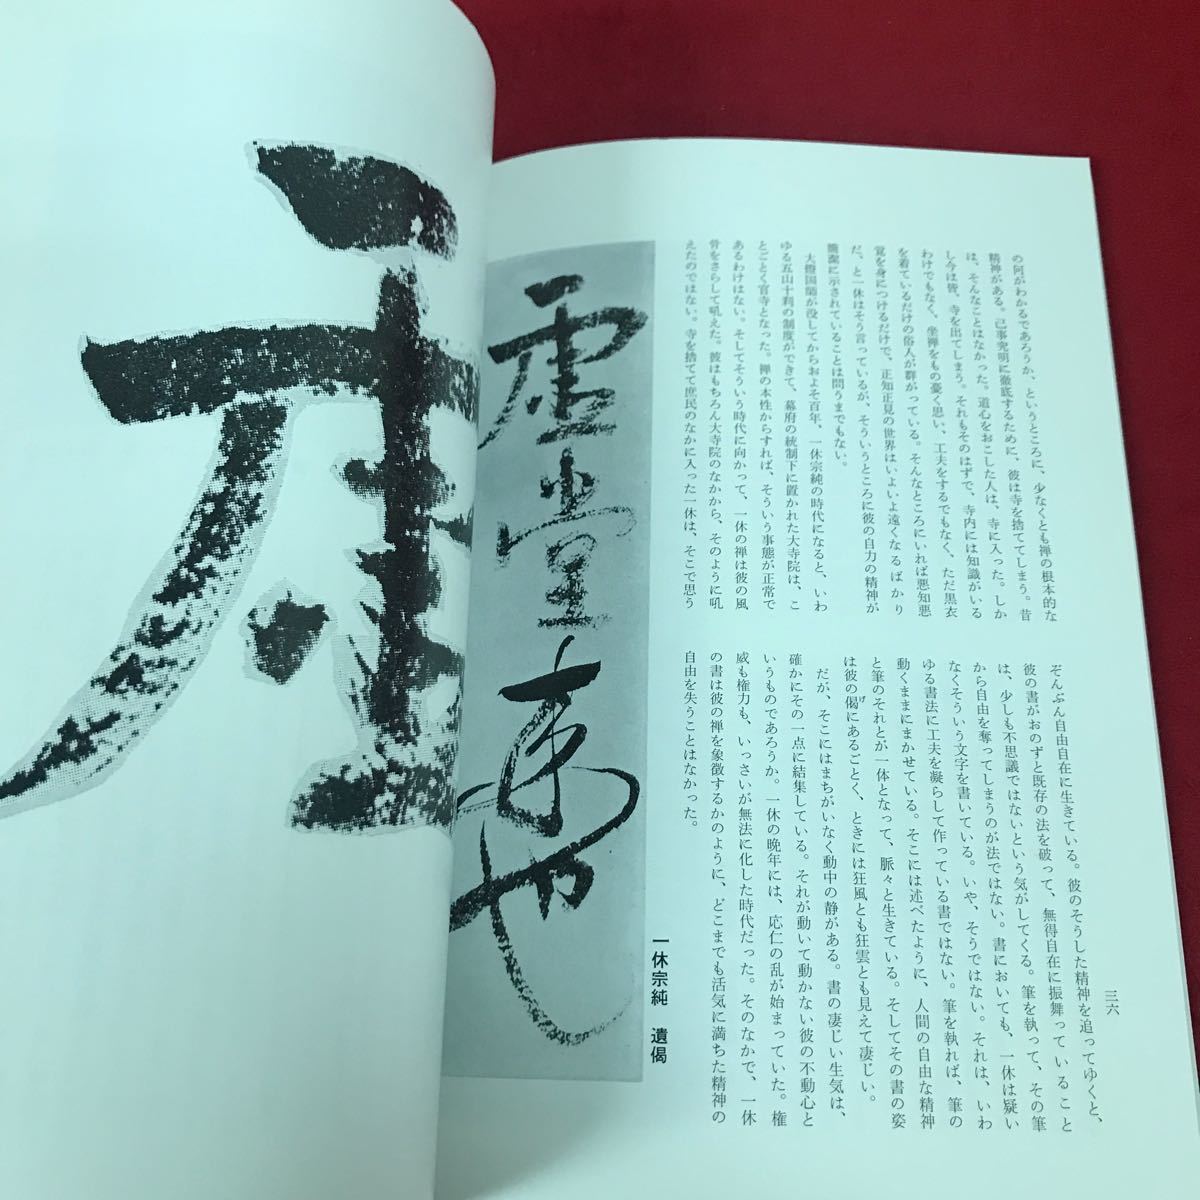 三六
の何がわかるであろうか、というところに、少なくとも禅の根本的な
精神がある。己事究明に徹底するために、彼は寺を捨ててしまう。昔
は、そんなことはなかった。道心をおこした人は、寺に入った。しか
し今は皆、寺を出てしまう。それもそのはずで、寺内には知識がいる
わけでもなく、坐禅をもの憂く思い、工夫をするでもなく、ただ黒衣
を着ているだけの俗人が群がっている。そんなところにいれば悪知悪
覚を身につけるだけで、正知正見の世界はいよいよ遠くなるばかり
だ、と一休はそう言っているが、そういうところに彼の自力の精神が
簡潔に示されていることは問うまでもない。
大燈国師が没してからおよそ百年、一休宗純の時代になると、いわ
ゆる五山十刹の制度ができて、幕府の統制下に置かれた大寺院は、こ
とごとく官寺となった。禅の本性からすれば、そういう事態が正常で
あるわけはない。そしてそういう時代に向かって、一休の禅は彼の風
骨をさらして吼えた。彼はもちろん大寺院のなかから、そのように吼
えたのではない。寺を捨てて庶民のなかに入った一休は、そこで思う
ぞんぶん自由自在に生きている。彼のそうした精神を追ってゆくと、
彼の書がおのずと既存の法を破って、無得自在に振舞っていること
は、少しも不思議ではないという気がしてくる。筆を執って、その筆
から自由を奪ってしまうのが法ではない。書においても、一休は疑い
なくそういう文字を書いている。いや、そうではない。それは、いわ
ゆる書法に工夫を凝らして作っている書ではない。筆を執れば、筆の
動くままにまかせている。そこには述べたように、人間の自由な精神
と筆のそれとが一体となって、脈々と生きている。そしてその書の姿
は彼の偈にあるごとく、ときには狂風とも狂雲とも見えて凄じい。
げ
だが、そこにはまちがいなく動中の静がある。書の凄じい生気は、
確かにその一点に結集している。それが動いて動かない彼の不動心と
いうものであろうか。一休の晩年には、応仁の乱が始まっていた。権
威も権力も、いっさいが無法に化した時代だった。そのなかで、一休
の書は彼の禅を象徴するかのように、どこまでも活気に満ちた精神の
自由を失うことはなかった。
一休宗純　遺偈
虚堂来也
虚